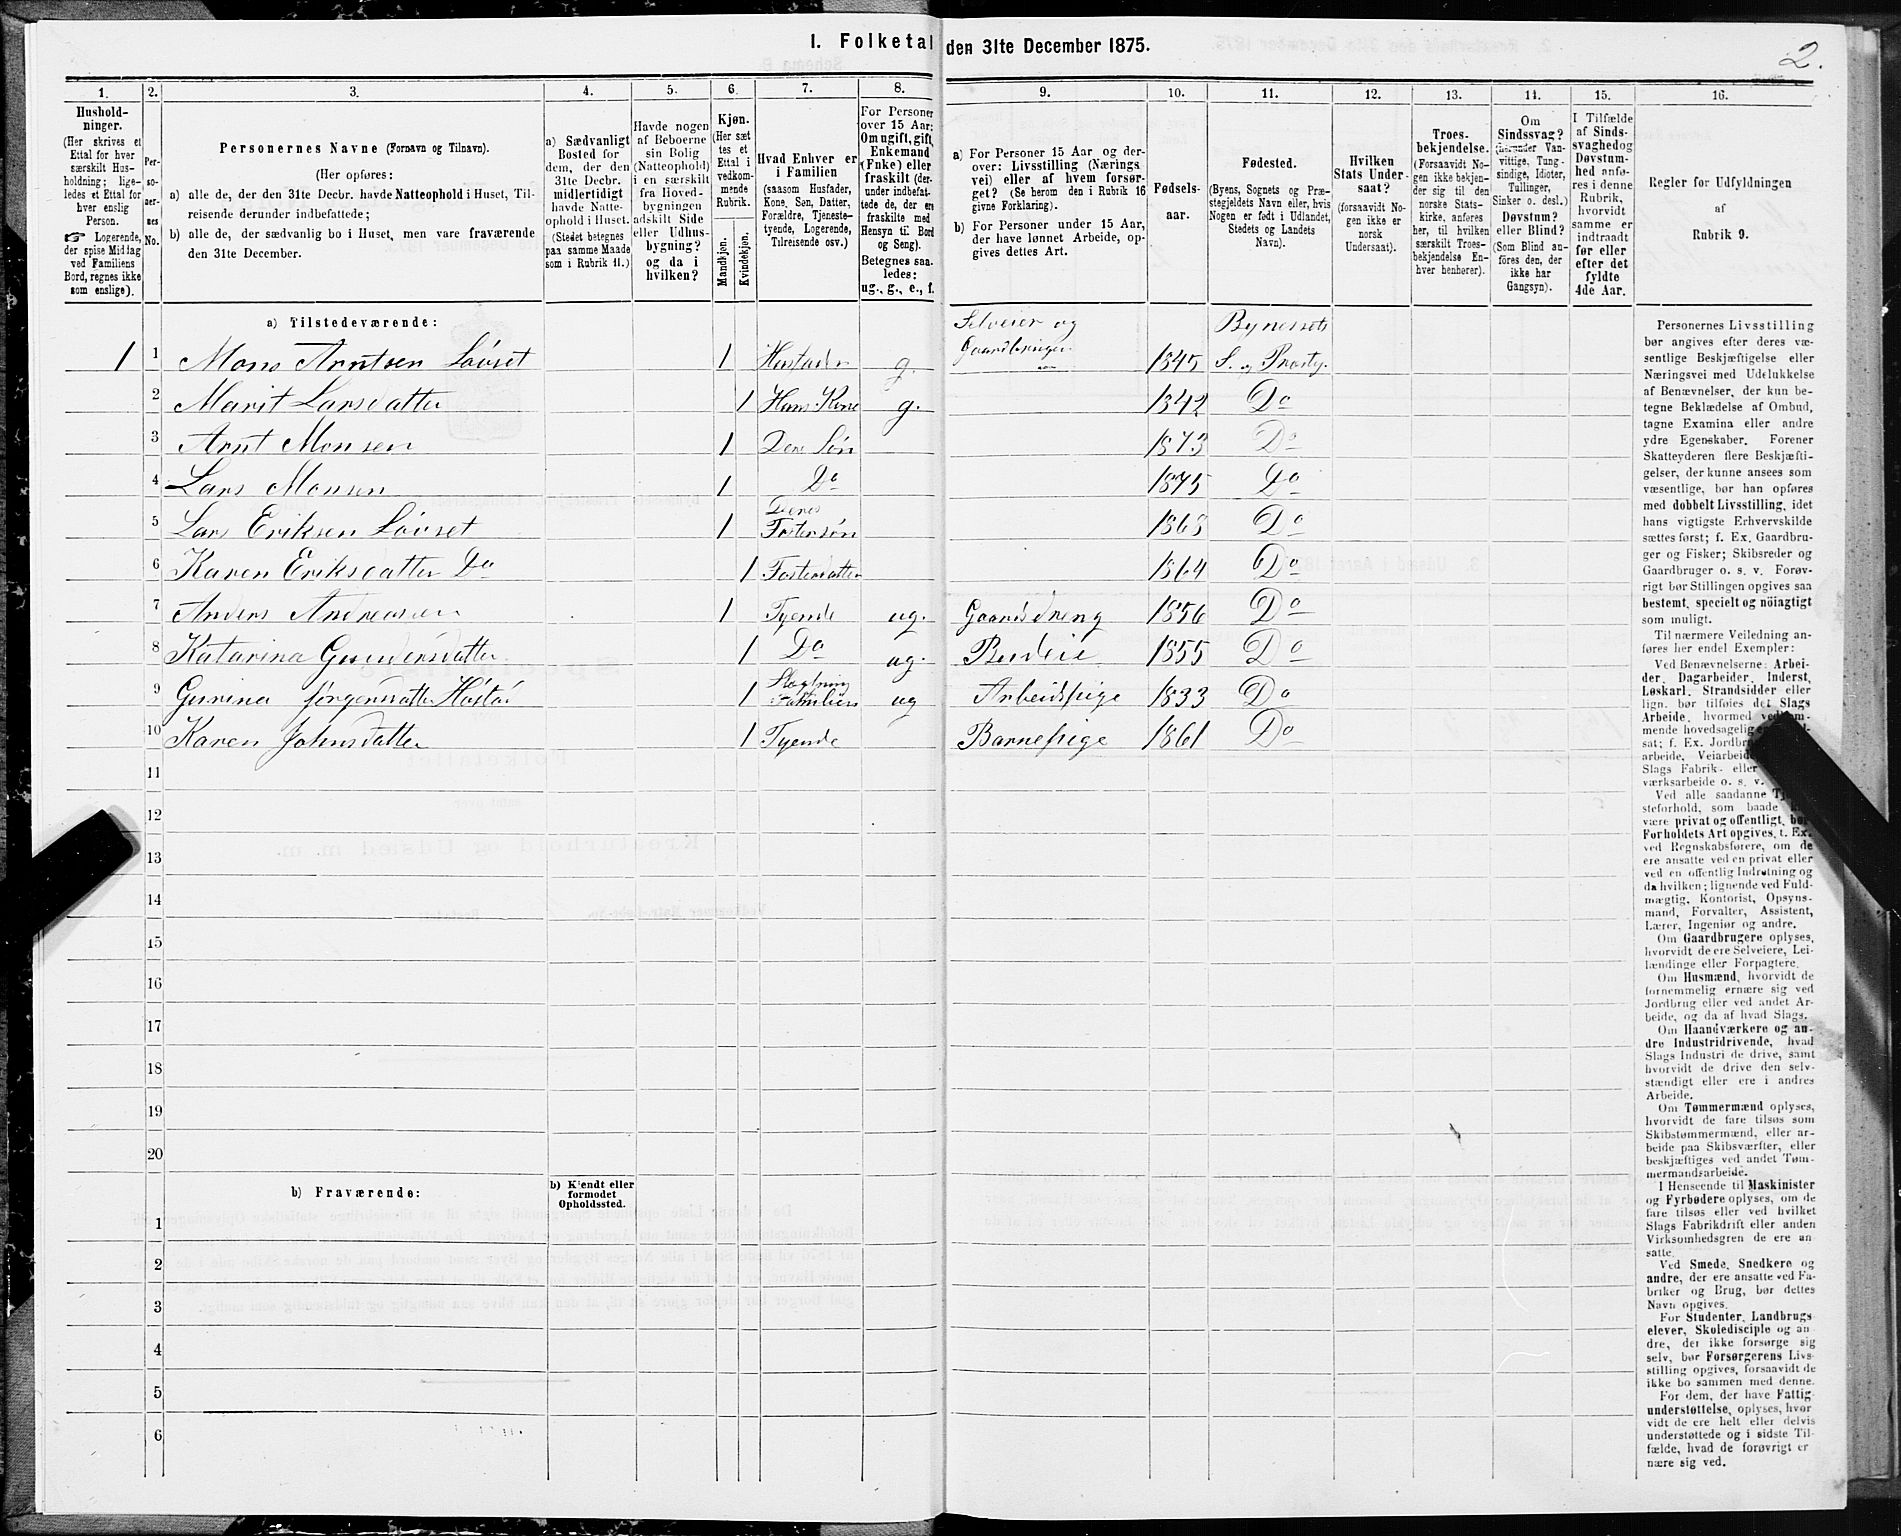 1. Folketal den 31te December 1875.
2.
1. 2. 3. 4. 5. 6. 7. 8. 9. 10. 11. 12. 13. 14. 15. 16.
Hushold-
ninger.
(Her skrives et
Ettal for hver
særskilt Hus-
holdning; lige-
ledes et Ettal for
hver enslig
Person.
☞ Logerende,
der spise Middag
ved Familiens
Bord, regnes ikke
som enslige).
Per-
so-
ner-
nes
No.
Personernes Navne (Fornavn og Tilnavn).
(Her opføres:
a) alle de, der den 31te Decbr. havde Natteophold i Huset, Til-
reisende derunder indbefattede;
b) alle de, der sædvanlig bo i Huset, men vare fraværende
den 31te December.
a) Sædvanligt
Bosted for
dem, der den
31te Decbr.
midlertidigt
havde Natte-
ophold i Huset.
(Stedet betegnes
paa samme Maade
som i Rubrik 11.)
Havde nogen
af Beboerne
sin Bolig
(Natteophold)
i en særskilt
fra Hoved-
bygningen
adskilt Side
eller Udhus-
bygning?
og da i
hvilken?
Kjøn.
(Her sæt
tes et
Ettal i
vedkom-
mende
Rubrik.
Mandkjøn.
Kvindekjøn.
Hvad Enhver er
i Familien
(saasom Husfader,
Kone, Søn, Datter,
Forældre, Tjeneste-
tyende, Logerende,
Tilreisende osv.)
For Personer
over 15 Aar:
Om ugift, gift,
Enkemand
(Enke) eller
fraskilt (der-
under indbefat-
tede de, der ere
fraskilte med
Hensyn til Bord
og Seng).
Betegnes saa-
ledes:
ug., g., e., f.
a) For Personer 15 Aar og der-
over: Livsstilling (Nærings
vei) eller af hvem forsør-
get? (Se herom den i Rubrik 16
givne Forklaring).
b) For Personer under 15 Aar,
der have lønnet Arbeide, op-
gives dettes Art.
Fødsels-
aar.
Fødested.
(Byens, Sognets og Præ-
stegjeldets Navn eller, hvis
Nogen er født i Udlandet,
Stedets og Landets
Navn).
Hvilken
Stats Under-
saat?
(forsaavidt No-
gen ikke er
norsk
Undersaat).
Troes-
bekjendelse.
(Forsaavidt No-
gen ikke bekjen-
der sig til den
norske Stats-
kirke, anføres
her, til hvilken
særskilt Troes-
bekjendelse En-
hver henhører).
Om
Sindssvag?
(herunder Van-
vittige, Tung-
sindige, Idioter,
Tullinger,
Sinker o. desl.)
Døvstum?
eller Blind?
(Som Blind an-
føres den, der
ikke har
Gangsyn).
I Tilfælde
af Sinds-
svaghed og
Døvstum-
hed anfø-
res i denne
Rubrik,
hvorvidt
samme er
indtraadt
før eller
efter det
fyldte
4de Aar.
Regler for Udfyldningen
af
Rubrik 9.
a) Tilstedeværende:
1 1 Mons Arntsen Løvset 1 Husfader g. Selveier og Gaardbruger 1845 Bynessets S. og Præstg.
2 Marit Larsdatter 1 Hans Kone g. 1842 Do
3 Arnt Monsen 1 Deres Søn 1873 Do
4 Lars Monsen 1 Do 1875 Do
5 Lars Eriksen Løvset 1 Deres Fostersøn 1868 Do
6 Karen Eriksdatter Do 1 Fosterdatter 1864 Do
7 Anders Andreassen 1 Tyende ug. Gaardsdreng 1856 Do
8 Katarina Gundersdatter 1 Do ug. Budeie 1855 Do
9 Gurina Jørgensdatter 1 Slægtning Familien ug Arbeidspige 1833 Do
10 Karen Johnsdatter 1 Tyende Barnepige 1861 Do
11
12
13
14
15
16
17
18
19
20
b) Fraværende:
b) Kjendt eller
formodet
Opholdssted.
1
2
3
4
5
6
Personernes Livsstilling
bør angives efter deres væ-
sentlige Beskjæftigelse eller
Næringsvei med Udelukkelse
af Benævnelser, der kun be-
tegne Beklædelse af Ombud,
tagne Examina eller andre
ydre Egenskaber. Forener
Skatteyderen flere Beskjæfti-
gelser, der kunne ansees som
væsentlige, bør han opføres
med dobbelt Livsstilling, idet
hans vigtigste Erhvervskilde
sættes først; f. Ex. Gaardbru-
ger og Fisker; Skibsreder og
Gaardbruger o. s. v. Forøv-
rigt bør Stillingen opgives saa
bestemt, specielt og nöiagtigt
som muligt.
Til nærmere Veiledning an-
føres her endel Exempler:
Ved Benævnelserne: Arbei-
der, Dagarbeider, Inderst,
Løskarl, Strandsidder eller
lign. bør tilføies det Slags
Arbeide, hvormed
mende hovedsagelig
sat; f. Ex.
arbeide, Veiarbeide
Slags Fabrik- eller
værksarbeide o. s. v.
Ved alle saadanne
steforhold, som baade
være privat og offentligt, bør
Forholdets Art opgives, t. Ex.
ved Regnskabsførere, om de
ere ansatte ved en privat eller
ved en offentlig Indretning og
da hvilken; lignende ved Fuld-
mægtig, Kontorist, Opsyns-
mand, Forvalter, Assistent,
Lærer, Ingeniør og andre.
Om Gaardbrugere oplyses,
hvorvidt de ere Selveiere, Lei-
lændinge eller Forpagtere.
Om Husmænd, hvorvidt de
fornemmelig ernære sig ved
Jordbrug eller ved andet Ar-
beide, og da af hvad Slags.
Om Haandværkere og an-
dre Industridrivende, hvad
Slags Industri de drive, samt
hvorvidt de drive den selv-
stændigt eller ere i andres
Arbeide.
Om Tømmermænd oplyses,
hvorvidt de fare tilsøs som
Skibstømmermænd, eller ar-
beide paa Skibsværfter, eller
beskjæftiges ved andet Tøm-
mermandsarbeide.
I Henseende til Maskinister
og Fyrbødere oplyses, om de
fare tilsøs eller ved hvilket
Slags Fabrikdrift eller anden
Virksomhedsgren de ere an-
satte.
Ved Smede, Snedkere og
andre, der ere ansatte ved Fa-
briker og Brug, bør dettes
Navn opgives.
For Studenter, Landbrugs-
elever, Skoledisciple og an-
dre, der ikke forsørge sig
selv, bør Forsørgerens Livs-
stilling opgives, forsaavidt de
ikke bo sammen med denne.
For dem, der have Fattig-
understøttelse, oplyses, hvor
vidt de ere helt eller delvis
understøttede og i sidste Til-
fælde, hvad de forøvrigt er
nære sig ved.